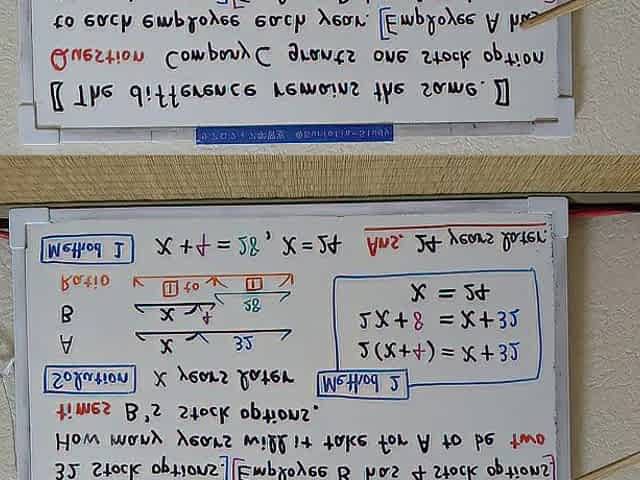 32 stock options. [Employee B has 4 stock options]
How many years will it take for A to be two
times B's stock options.
Solution X years later
A X 32
B X 4 28
Ratio 1 to 1
Method 2
2(X+4) = X+32
2X+8 = X+32
X = 24
Method 1 X+4=28, X=24 Ans. 24 years later.
[The difference remains the same.]
Question Company C grants one stock option
to each employee each year. [Employee A has